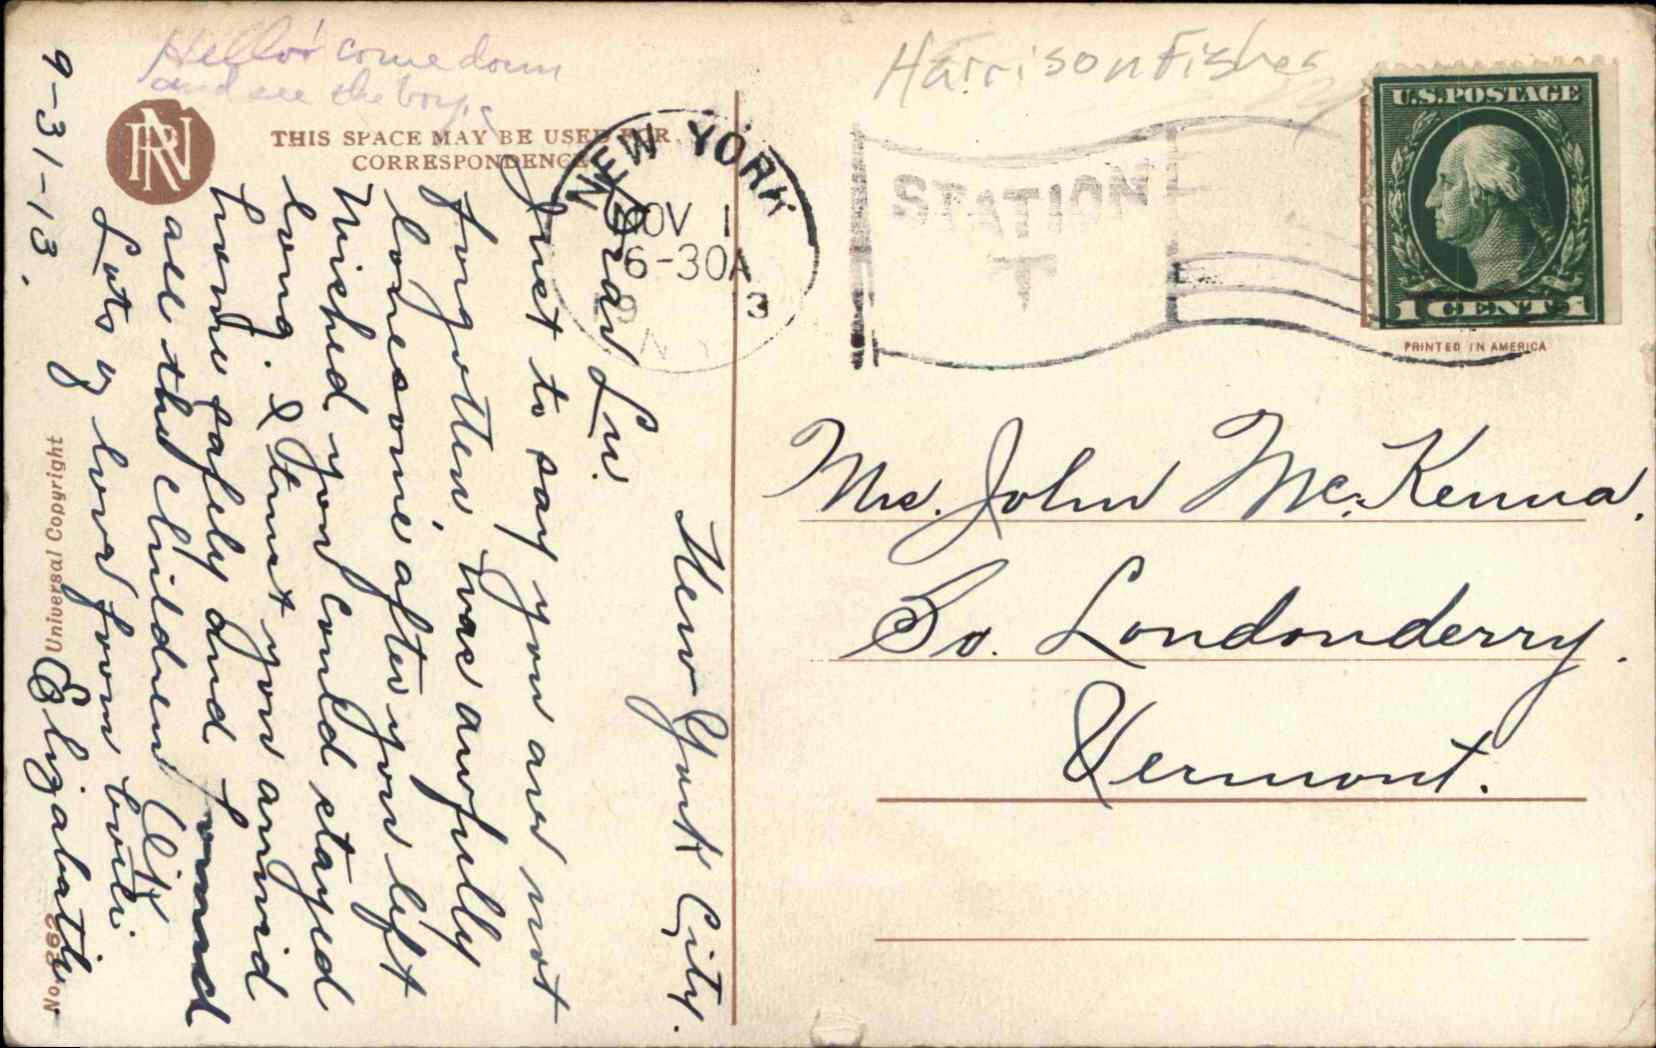 Hello' come down
and see the boys
RN
THIS SPACE MAY BE USED FOR
CORRESPONDENCE
Harrison Fisher
NEW YORK
NOV 1
6-30A
3
N.Y.
STATION
T
U.S. POSTAGE
1 CENT 1
PRINTED IN AMERICA
Mrs. John McKenna.
So. Londonderry.
Vermont.
New York City.
Dear Lu.
Just to say you are not
forgotten, was awfully
lonesome after you left
Wished you could stayed
long. I trust you arrivid
home safely and found
all the children O.K.
Lots of love from
Elizabeth
9-31-13.
Universal Copyright
No.